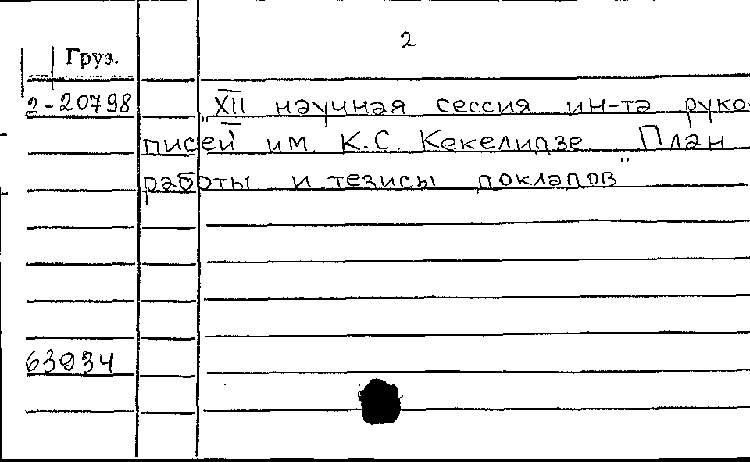 2
Груз.
2-20798
„XII научная сессия ин-та руко-
писей им. К.С. Кекелидзе План
работы и тезисы докладов"
63934